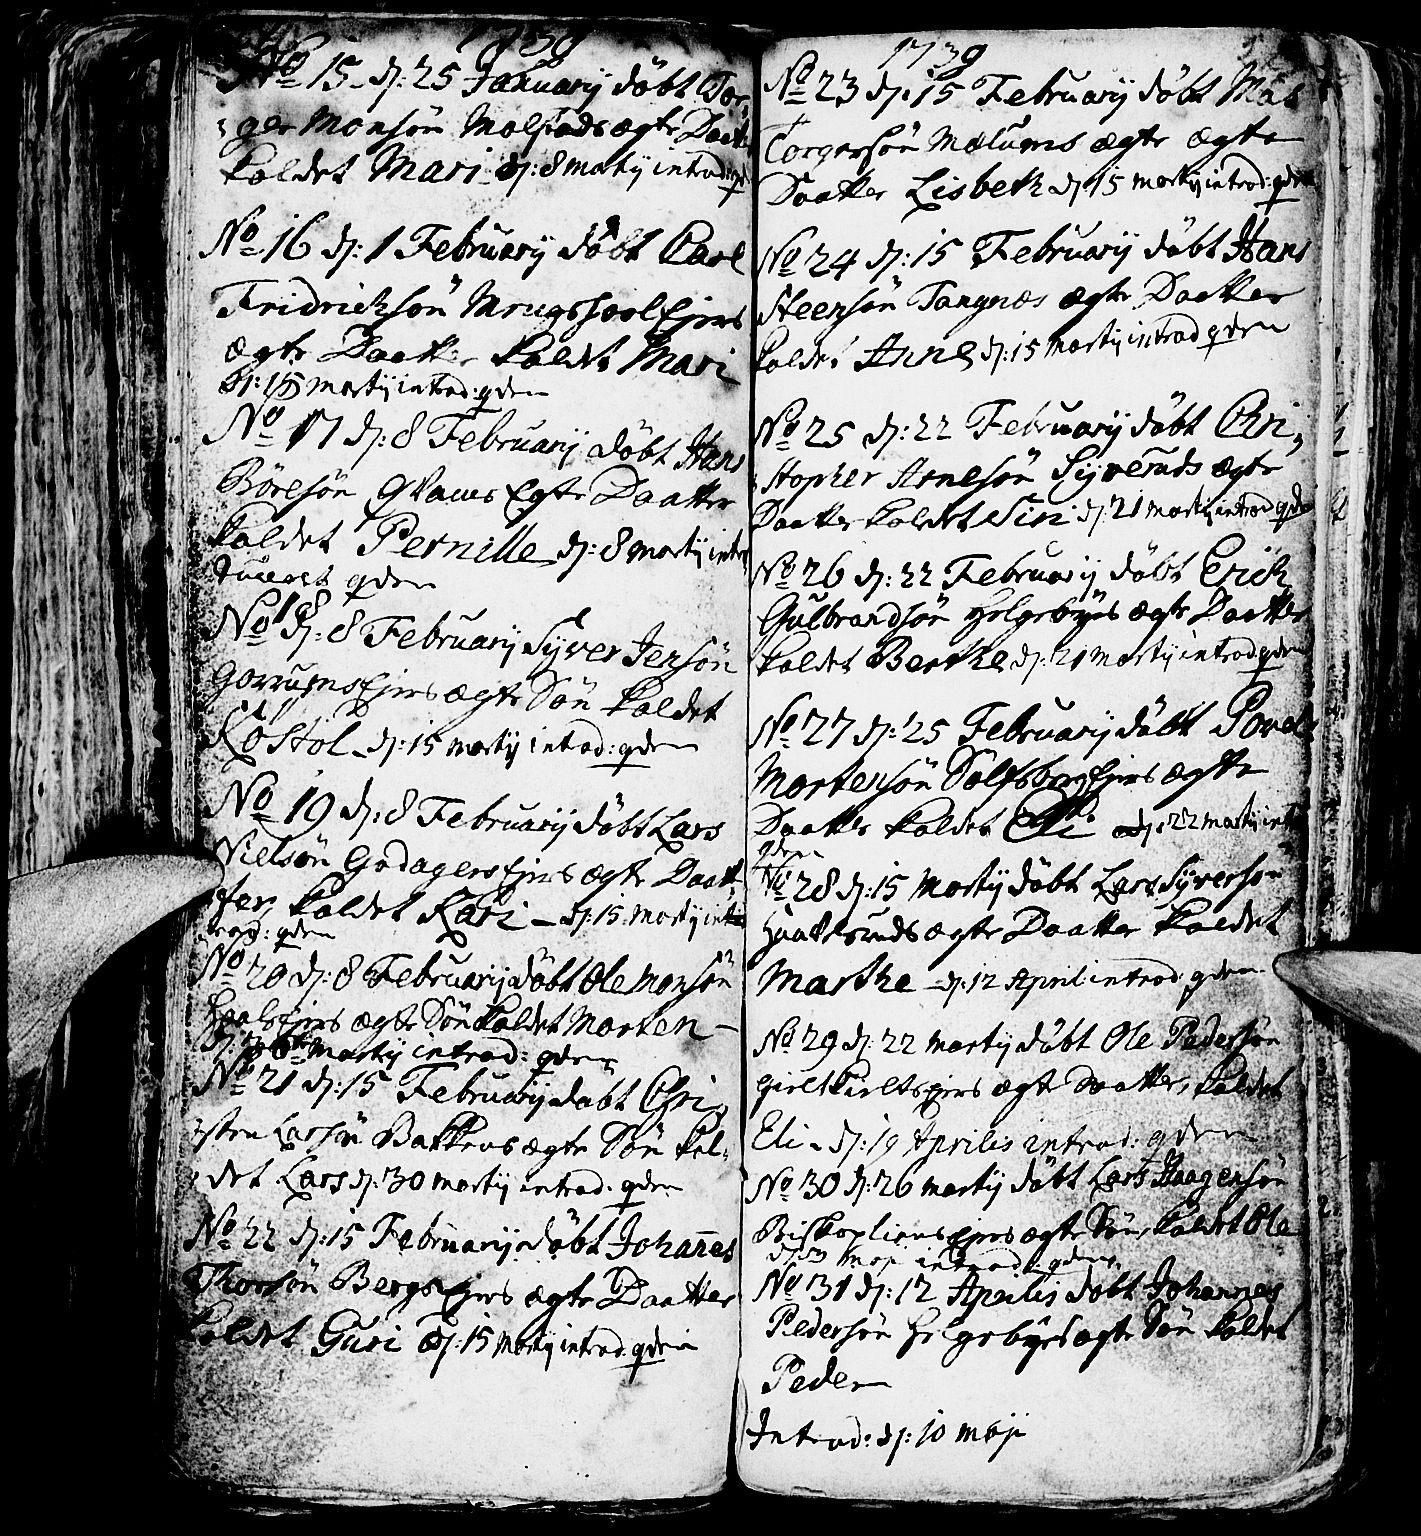 1739
No 15 d: 25 January döbt Tor,
ger Monsön Molstads ægte Daatt
kaldet Mari d: 8 martij introd: qden
No 16 d: 1 February döbt Carl
Fridrichsön ægte
ægte Daatter kaldet Mari
d: 15 martij introd: qden
No 17 d: 8 February döbt Hans
Böresön Egte Daatter
kaldet Pernille d: 8 martij intro
duceret qden
No 18 d: 8 February Syver Jensön
Gorrums Ejers ægte Sön kaldet
Kostol d: 15 martij introd: qden
No 19 d: 8 February döbt Lars
Nielsön Godagers Ejers ægte Daat,
ter, kaldet Kari d: 15 martij in
trod: qden
No 20 d: 8 February döbt Ole Monsön
Ejers ægte Sön kaldet Morten
martij introd: qden
No 21 d: 15 February döbt Chri,
sten Larsön Bakkens ægte Sön kal,
det Lars d: 30 martij introd: qden
No 22 d: 15 February döbt Johannes
Thorsön Bergs Ejers ægte Daatter
kaldet Guri d: 15 martij introd: qden
1739
No 23 d: 15 February döbt
Torgersön Mælums ægte ægte
Daatter Lisbeth d: 15 martij introd: qden
No 24 d: 15 February döbt Hans
Steensön Tangnæs ægte Daatter
kaldet Anne d: 15 martij introd qden
No 25 d: 22 February döbt Chri,
stopher Arnesön Syveruds ægte
Daatter kaldet Siri d: 21 martij introd qden
No 26 d: 22 February döbt Erich
Gulbrandsön Helgebyes ægte Daatter
kaldet Berthe d: 21 martij introd qden
No 27 d: 25 February döbt Povel
Mortensön Solfsberg Ejers ægte
Daatter kaldet Eli d: 22 martij int
qden
No 28 d: 15 Martij döbt Lars Syversön
ægte Daatter kaldet
Marthe d: 12 April introd: qden
No 29 d: 22 martij döbt Ole Pedersön
Ejers ægte Daatter, kaldet
Eli d: 19 Aprilis introd: qden
No 30 d: 26 martij döbt Lars Haagensön
Biskopliens Ejers ægte Sön, kaldet Ole
d: 3 Maji introd: qden
No 31 d: 12 Aprilis döbt Johannes
Pedersön Helgebyes ægte Sön kaldet
Peder
Introd: d: 10 maji